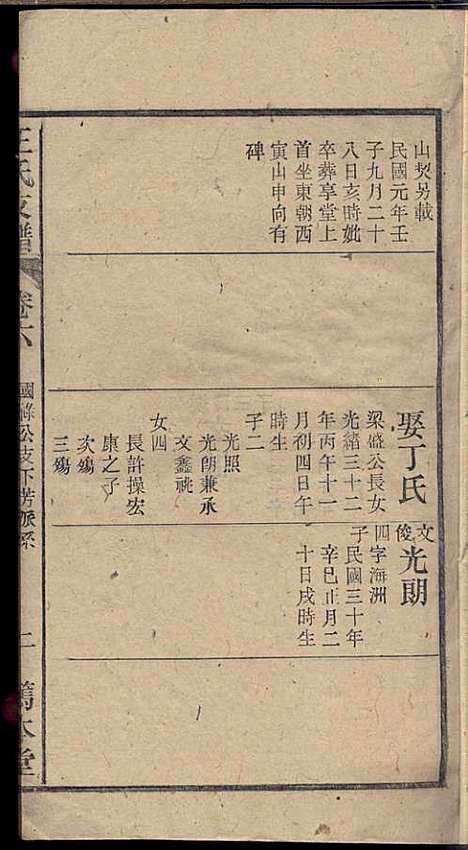 山契另載
民國元年壬
子九月二十
八日亥時妣
卒葬享堂上
首坐東朝西
寅山申向有
碑
娶丁氏
梁盛公長女
光緒三十二
年丙午十一
月初四日午
時生
子二
光照
光朗兼承
文鑫祧
女四
長許操宏
康之子
次殤
三殤
文俊
四子
光朗
字海洲
民國三十年
辛巳正月二
十日戌時生
王氏支譜
卷六
國祿公支下芳派系
二
篤本堂